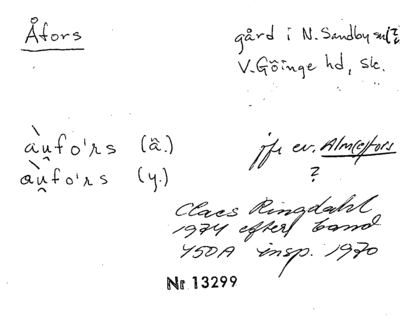 Åfors
gård i N. Sandby sn (?)
V. Göinge hd, Sk.
àu̯fo'rs (å.)
àu̯fo'rs (y.)
jfr ev. Alm(e)fors
?
Claes Ringdahl
1974 efter band
450A insp. 1970
Nr 13299